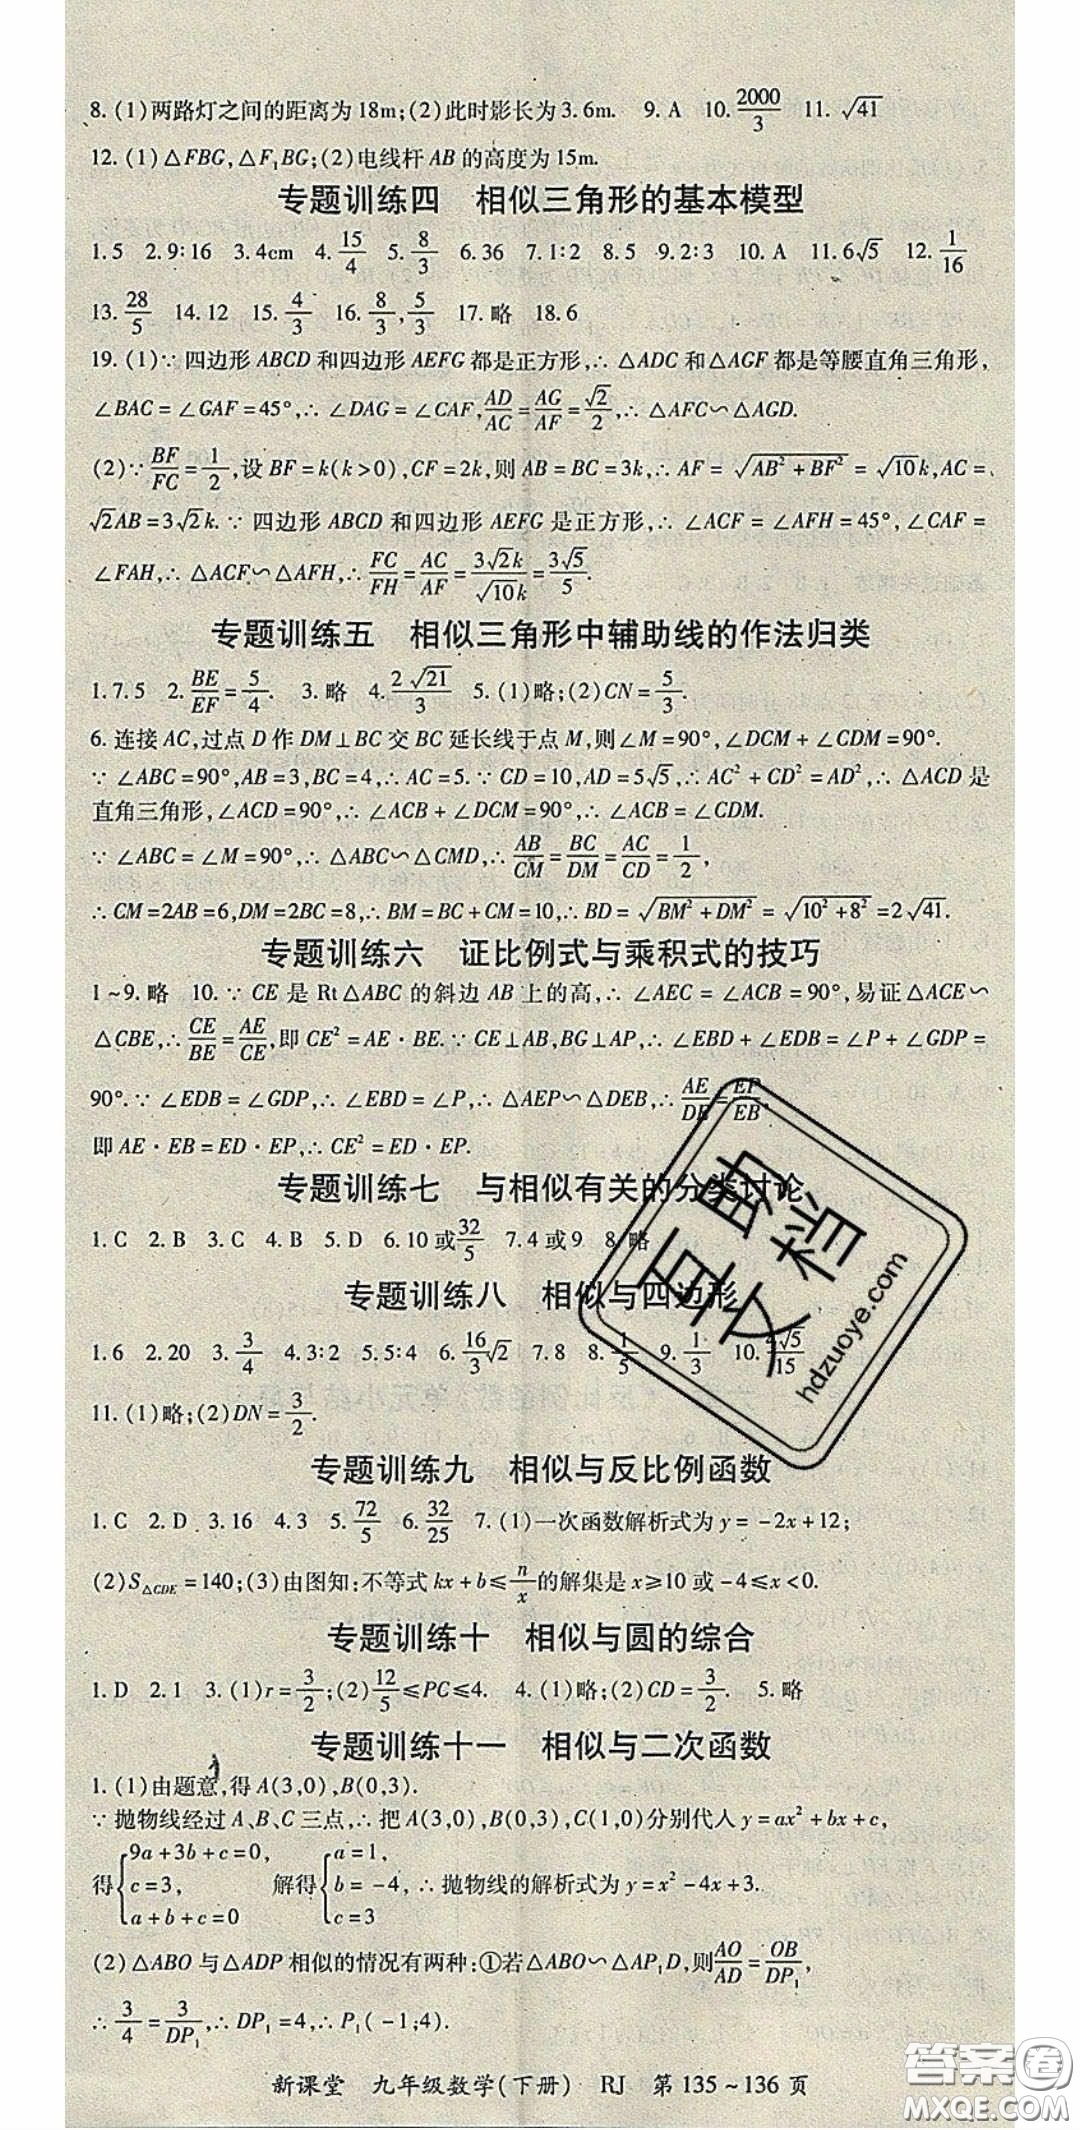 8. (1)两路灯之间的距离为18m;(2)此时影长为3.6m. 9. A 10. 2000/3 11. √41
12. (1)△FBG,△F₁BG;(2)电线杆AB的高度为15m.
专题训练四 相似三角形的基本模型
1.5 2.9∶16 3.4cm 4. 15/4 5. 8/3 6.36 7.1∶2 8.5 9.2∶3 10. A 11.6√5 12. 1/16
13. 28/5 14.12 15. 4/3 16. 8/3, 5/3 17.略 18.6
19. (1)∵四边形ABCD和四边形AEFG都是正方形,∴△ADC和△AGF都是等腰直角三角形,
∠BAC=∠GAF=45°,∴∠DAG=∠CAF, AD/AC=AG/AF=√2/2,∴△AFC∽△AGD.
(2)∵BF/FC=1/2,设BF=k(k>0),CF=2k,则AB=BC=3k,∴AF=√(AB²+BF²)=√10k,AC=
√2AB=3√2k.∵四边形ABCD和四边形AEFG是正方形,∴∠ACF=∠AFH=45°,∠CAF=
∠FAH,∴△ACF∽△AFH,∴FC/FH=AC/AF=3√2k/√10k=3√5/5.
专题训练五 相似三角形中辅助线的作法归类
1.7.5 2. BE/EF=5/4. 3.略 4. 2√21/3 5. (1)略;(2)CN=5/3.
6.连接AC,过点D作DM⊥BC交BC延长线于点M,则∠M=90°,∠DCM+∠CDM=90°.
∵∠ABC=90°,AB=3,BC=4,∴AC=5.∵CD=10,AD=5√5,∴AC²+CD²=AD²,∴△ACD是
直角三角形,∠ACD=90°,∴∠ACB+∠DCM=90°,∴∠ACB=∠CDM.
∵∠ABC=∠M=90°,∴△ABC∽△CMD,∴AB/CM=BC/DM=AC/CD=1/2,
∴CM=2AB=6,DM=2BC=8,∴BM=BC+CM=10,∴BD=√(BM²+DM²)=√(10²+8²)=2√41.
专题训练六 证比例式与乘积式的技巧
1~9.略 10.∵CE是Rt△ABC的斜边AB上的高,∴∠AEC=∠ACB=90°,易证△ACE∽
△CBE,∴CE/BE=AE/CE,即CE²=AE·BE.∵CE⊥AB,BG⊥AP,∴∠EBD+∠EDB=∠P+∠GDP=
90°.∵∠EDB=∠GDP,∴∠EBD=∠P,∴△AEP∽△DEB,∴AE/DE=EP/EB,
即AE·EB=ED·EP,∴CE²=ED·EP.
专题训练七 与相似有关的分类讨论
1. C 2. B 3. C 4. B 5. D 6.10或32/5 7.4或9 8.略
专题训练八 相似与四边形
1.6 2.20 3. 3/4 4.3∶2 5.5∶4 6. 16/3√2 7.8 8. 1/5 9. 1/3 10. 4√5/15
11. (1)略;(2)DN=3/2.
专题训练九 相似与反比例函数
1. C 2. D 3.16 4.3 5. 72/5 6. 32/25 7. (1)一次函数解析式为y=-2x+12;
(2)S△CDE=140;(3)由图知:不等式kx+b≤n/x的解集是x≥10或-4≤x<0.
专题训练十 相似与圆的综合
1. D 2.1 3. (1)r=3/2;(2)12/5≤PC≤4. 4. (1)略;(2)CD=3/2. 5.略
专题训练十一 相似与二次函数
1. (1)由题意,得A(3,0),B(0,3).
∵抛物线经过A、B、C三点,∴把A(3,0),B(0,3),C(1,0)分别代人y=ax²+bx+c,
得{9a+3b+c=0, c=3, a+b+c=0 解得{a=1, b=-4, c=3 ∴抛物线的解析式为y=x²-4x+3.
(2)△ABO与△ADP相似的情况有两种:①若△ABO∽△AP₁D,则AO/AD=OB/DP₁,
∴3/4=3/DP₁,∴DP₁=4,∴P₁(-1;4).
新课堂 九年级数学(下册) RJ 第135~136页
互助
文档
hdzuoye.com
答案圈
MXQE.COM